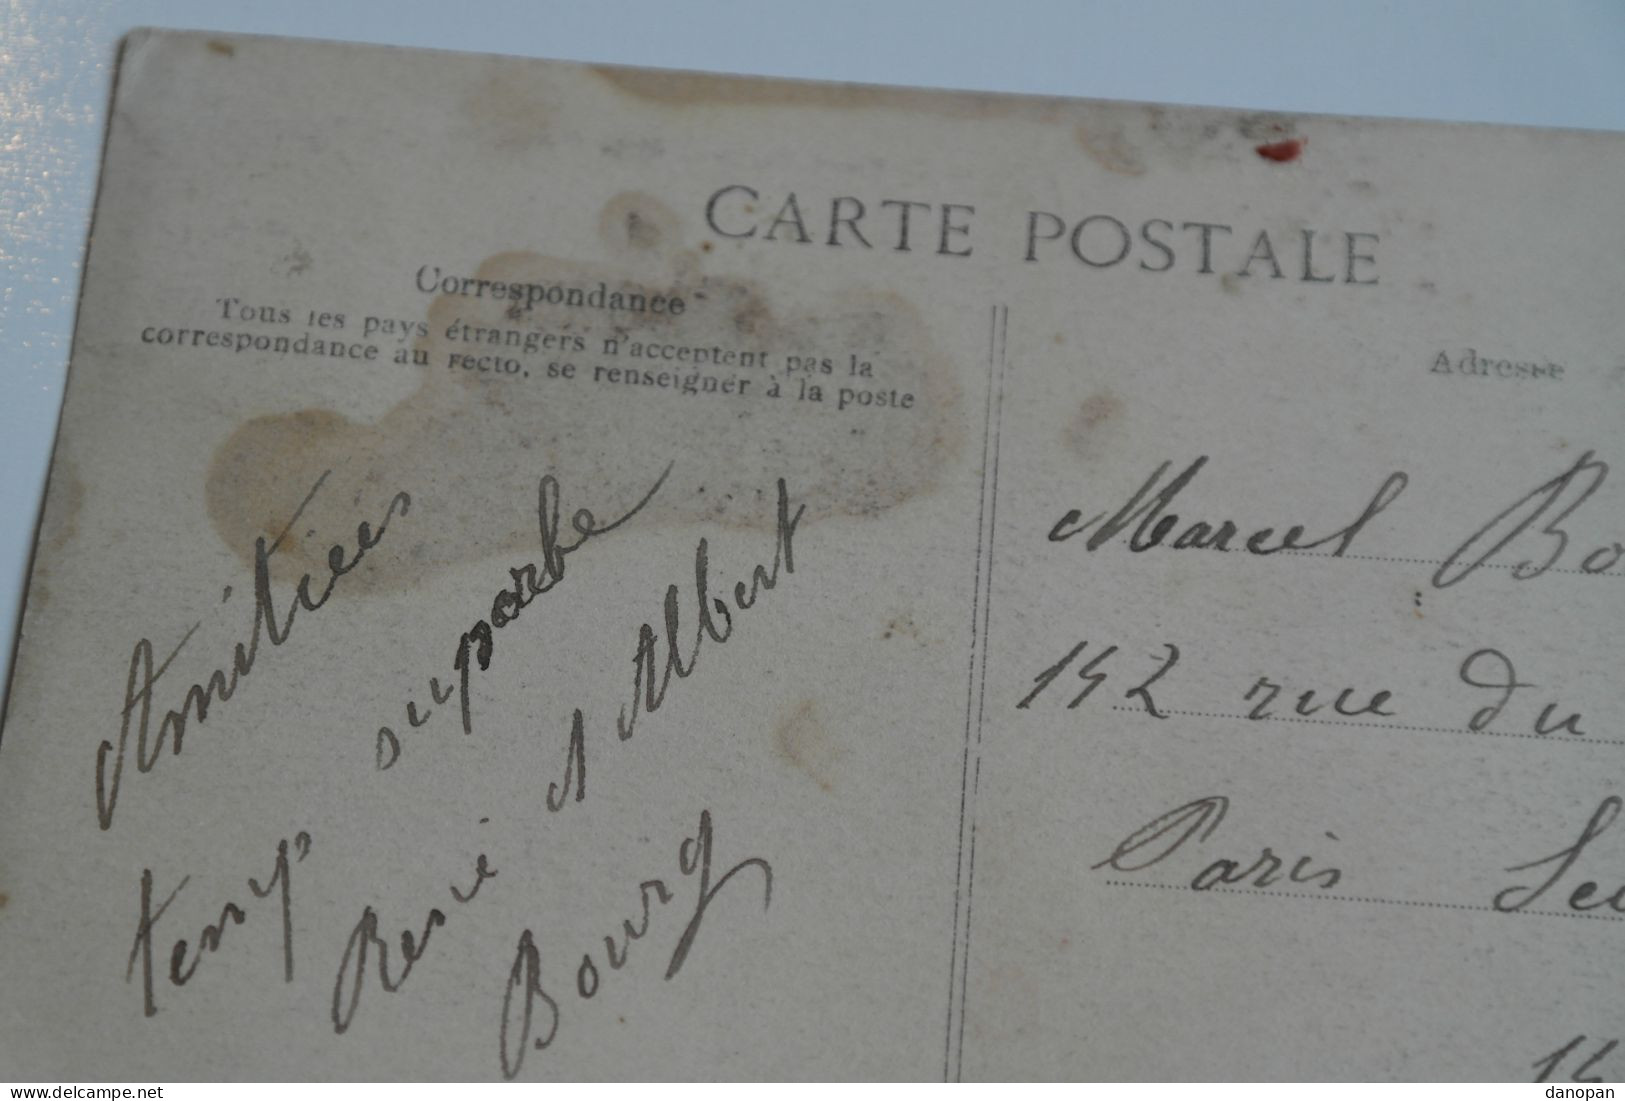 CARTE POSTALE
Correspondance
Tous les pays étrangers n'acceptent pas la
correspondance au recto, se renseigner à la poste
Amitiées
temp suparbe
René Albert
Bourg
Adresse
Marcel Bo
142 rue du
Paris Sei
14
delcampe.net
danopan